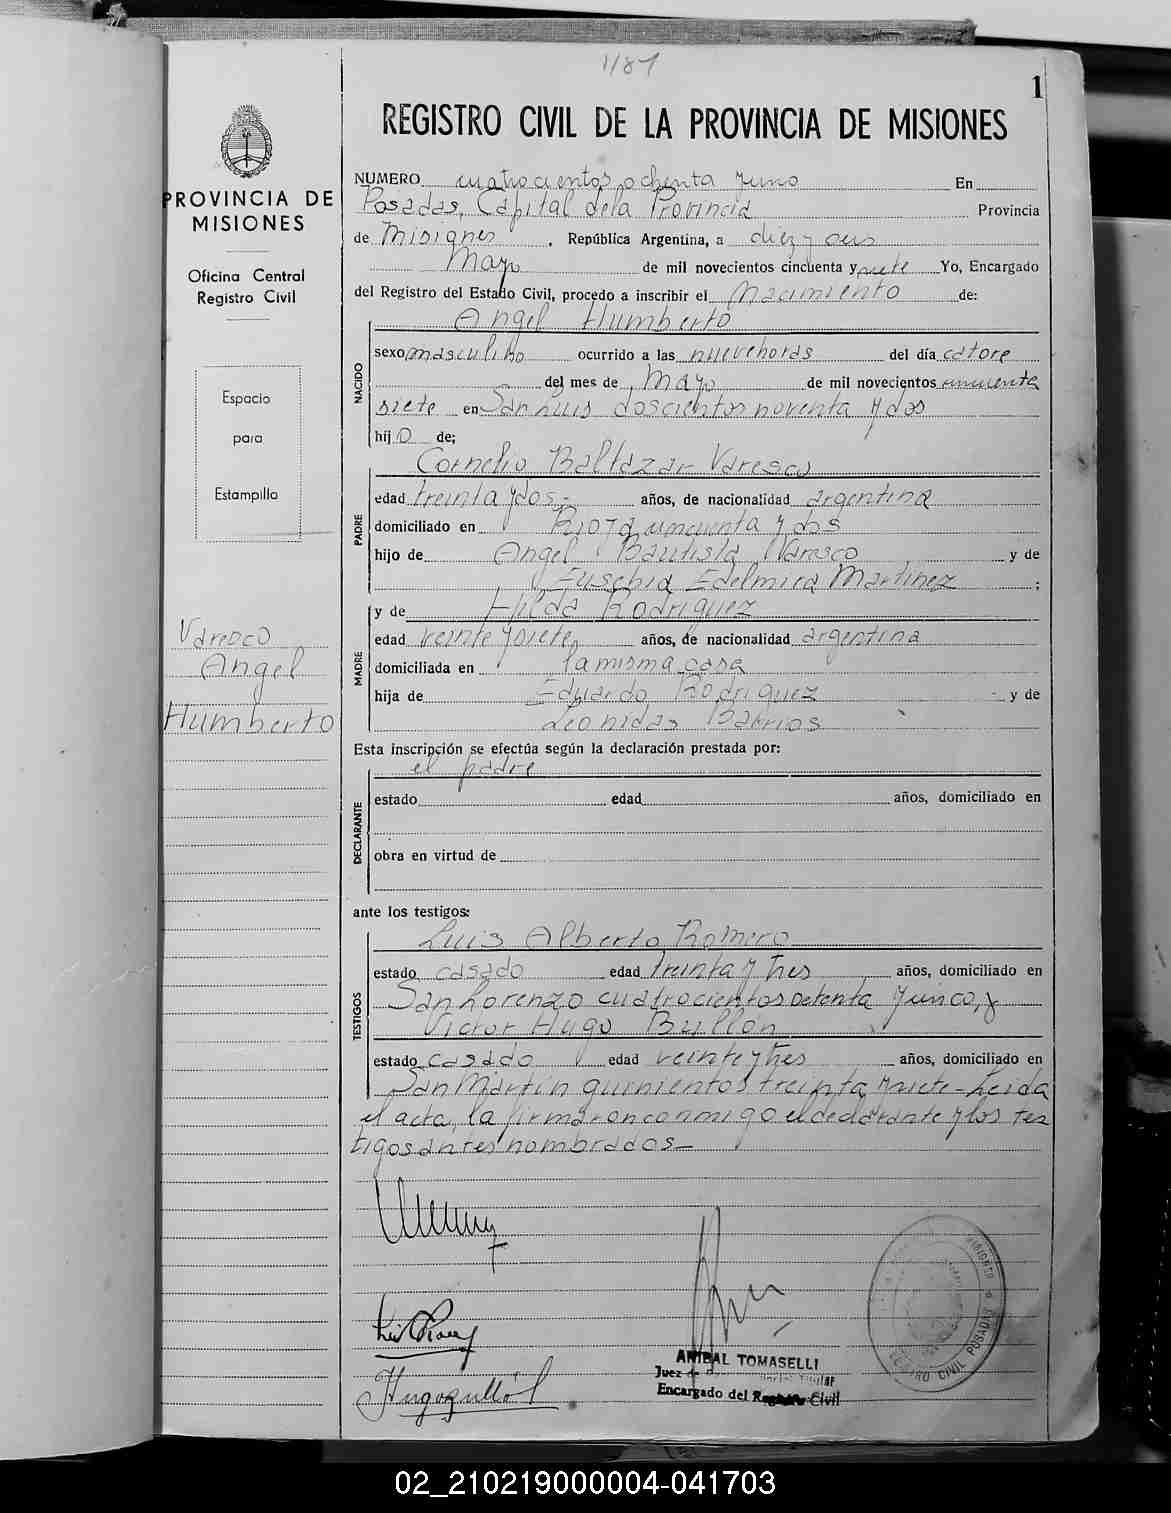 1181
1
REGISTRO CIVIL DE LA PROVINCIA DE MISIONES
PROVINCIA DE
MISIONES
Oficina Central
Registro Civil
Espacio
para
Estampilla
Varesco
Angel
Humberto
NUMERO cuatrocientos ochenta y uno En
Posadas, Capital de la Provincia Provincia
de Misiones, República Argentina, a diez y seis
Mayo de mil novecientos cincuenta y siete Yo, Encargado
del Registro del Estado Civil, procedo a inscribir el Nacimiento de:
Angel Humberto
NACIDO
sexo masculino ocurrido a las nueve horas del día catorce
del mes de Mayo de mil novecientos cincuenta
siete en San Luis doscientos noventa y dos
hijo de;
Cornelio Baltazar Varesco
PADRE
edad treinta y dos- años, de nacionalidad argentina
domiciliado en Rioja cincuenta y dos
hijo de Angel Bautista Varesco y de
Eusebia Edelmira Martinez ;
y de Hilda Rodriguez
MADRE
edad veinte y siete, años, de nacionalidad argentina
domiciliada en la misma casa
hija de Eduardo Rodriguez y de
Leonidas Barrios
Esta inscripción se efectúa según la declaración prestada por:
el padre
DECLARANTE
estado edad años, domiciliado en
obra en virtud de
ante los testigos:
Luis Alberto Romero
TESTIGOS
estado casado edad treinta y tres años, domiciliado en
San Lorenzo cuatrocientos setenta y cinco, y
Victor Hugo Bullón
estado casado edad veinte y tres años, domiciliado en
San Martín quinientos treinta y siete- Leida
el acta, la firmaron conmigo el declarante y los tes
tigos antes nombrados-
ANIBAL TOMASELLI
Juez de
Encargado del Registro Civil
REGISTRO CIVIL POSADAS
MISIONES
02_210219000004-041703